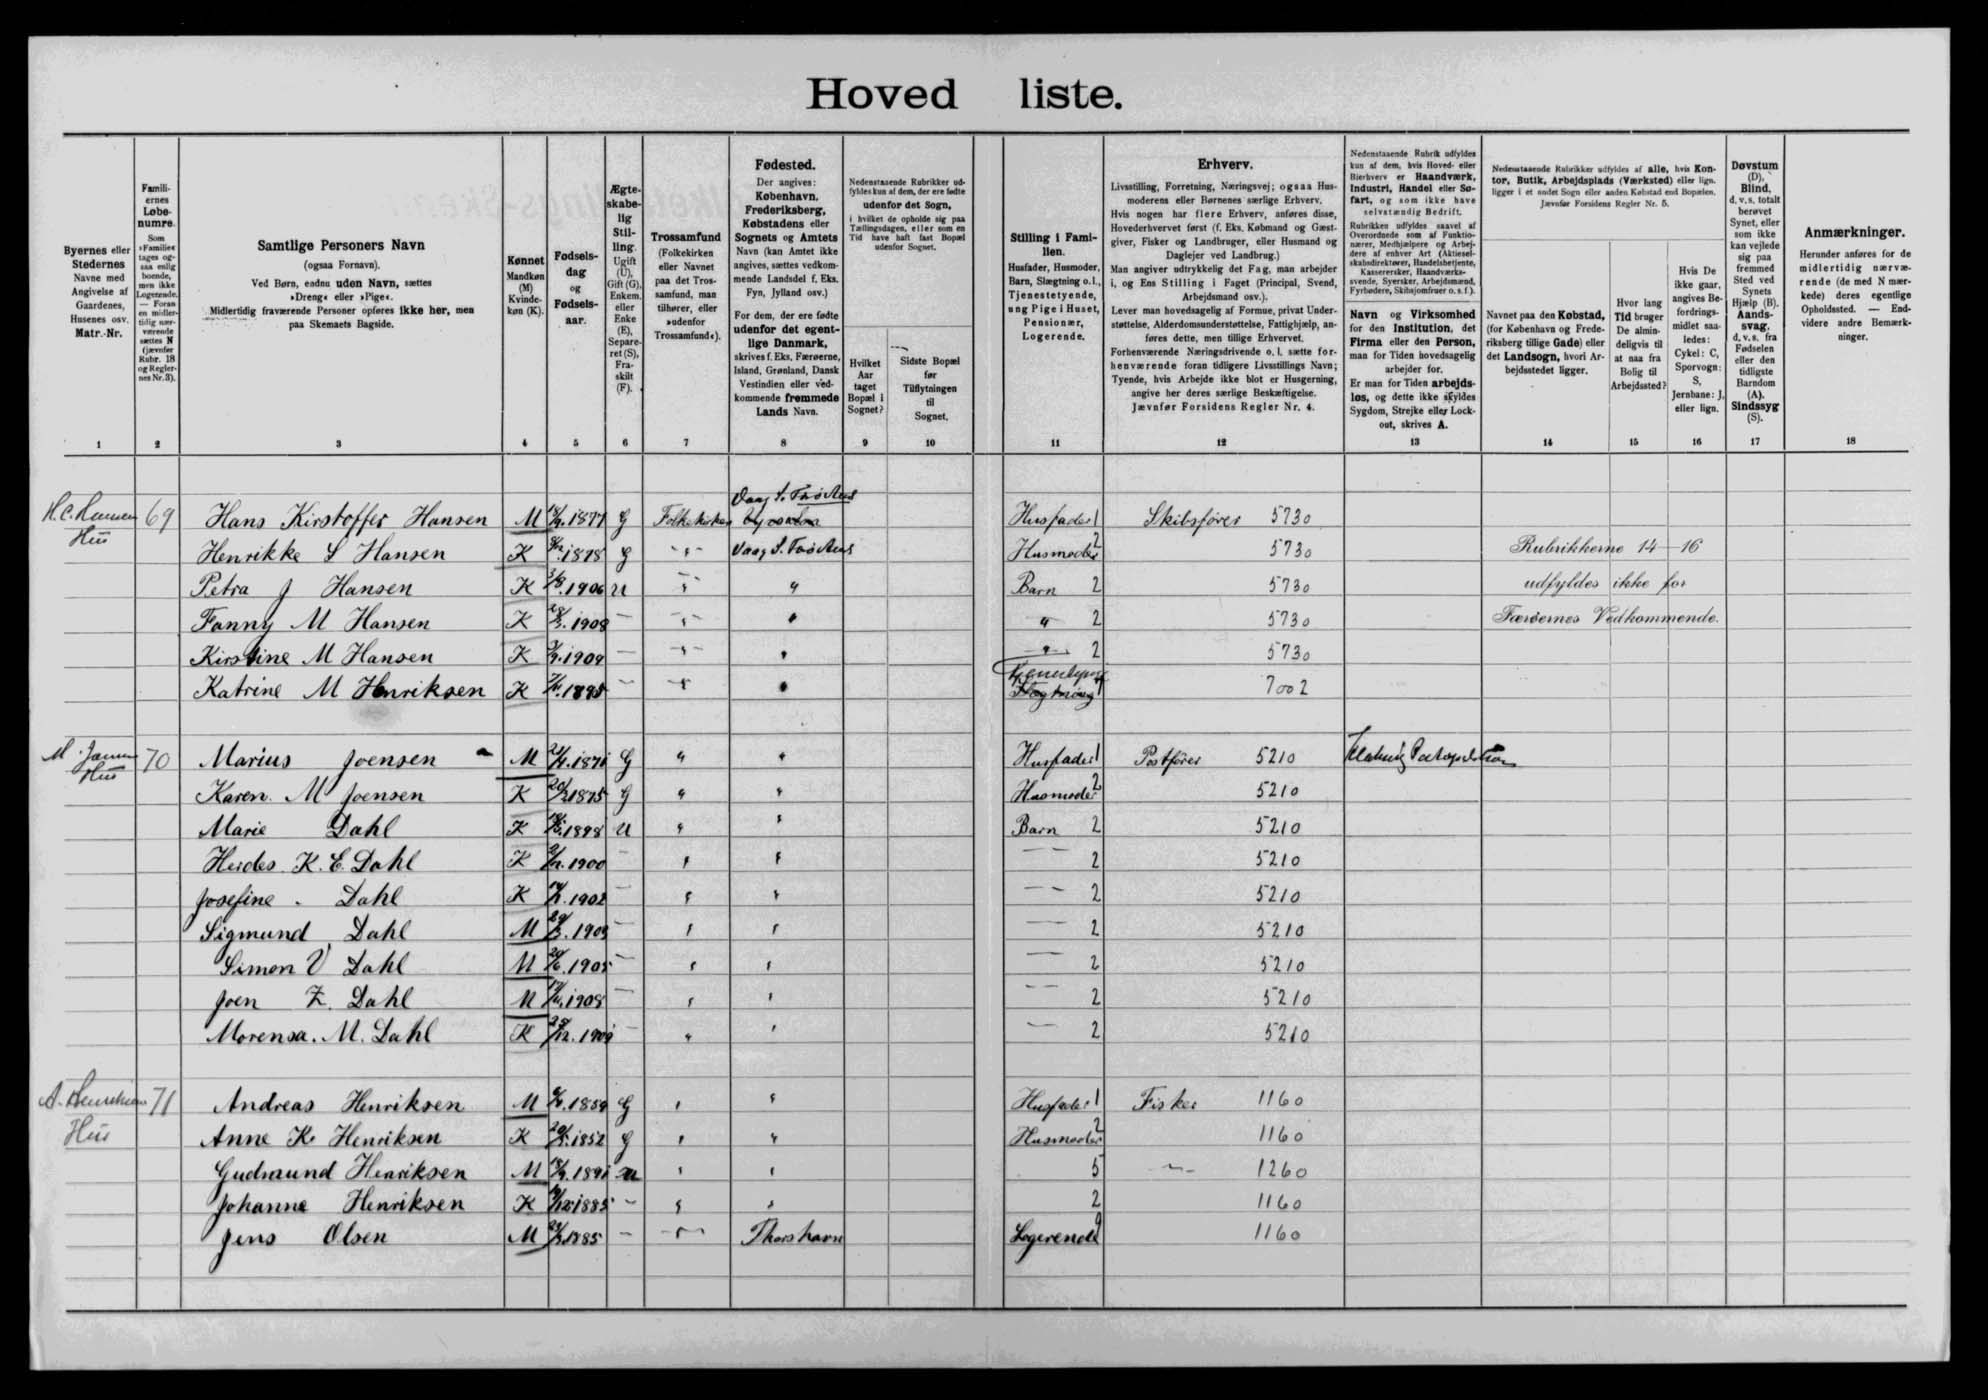 Hovedliste.
Byernes eller Stedernes Navne med Angivelse af Gaardenes, Husenes osv. Matr.-Nr.
Familiernes Løbenumre. Som »Familie« tages ogsaa enlig boende, men ikke Logerende. — Foran en midlertidig nærværende sættes N (jævnfør Rubr. 18 og Regler- nes Nr. 3).
Samtlige Personers Navn (ogsaa Fornavn). Ved Børn, endnu uden Navn, sættes »Dreng« eller »Pige«. Midlertidig fraværende Personer opføres ikke her, men paa Skemaets Bagside.
Kønnet Mandkøn (M) Kvindekøn (K).
Fødselsdag og Fødselsaar.
Ægteskabelig Stilling. Ugift (U), Gift (G), Enkem. eller Enke (E), Separeret (S), Fraskilt (F).
Trossamfund (Folkekirken eller Navnet paa det Trossamfund, man tilhører, eller »udenfor Trossamfund«).
Fødested. Der angives: København, Frederiksberg, Købstadens eller Sognets og Amtets Navn (kan Amtet ikke angives, sættes vedkommende Landsdel f. Eks. Fyn, Jylland osv.) For dem, der ere fødte udenfor det egentlige Danmark, skrives f. Eks. Færøerne, Island, Grønland, Dansk Vestindien eller vedkommende fremmede Lands Navn.
Nedenstaaende Rubrikker udfyldes kun af dem, der ere fødte udenfor det Sogn, i hvilket de opholde sig paa Tællingsdagen, eller som en Tid have haft fast Bopæl udenfor Sognet.
Hvilket Aar taget Bopæl i Sognet?
Sidste Bopæl før Tilflytningen til Sognet.
Stilling i Familien. Husfader, Husmoder, Barn, Slægtning o.l., Tjenestetyende, ung Pige i Huset, Pensionær, Logerende.
Erhverv. Livsstilling, Forretning, Næringsvej; ogsaa Husmoderens eller Børnenes særlige Erhverv. Hvis nogen har flere Erhverv, anføres disse, Hovederhvervet først (f. Eks. Købmand og Gæstgiver, Fisker og Landbruger, eller Husmand og Daglejer ved Landbrug.) Man angiver udtrykkelig det Fag, man arbejder i, og Ens Stilling i Faget (Principal, Svend, Arbejdsmand osv.). Lever man hovedsagelig af Formue, privat Understøttelse, Alderdomsunderstøttelse, Fattighjælp, anføres dette, men tillige Erhvervet. Forhenværende Næringsdrivende o. l. sætte forhenværende foran tidligere Livsstillings Navn; Tyende, hvis Arbejde ikke blot er Husgerning, angive her deres særlige Beskæftigelse. Jævnfør Forsidens Regler Nr. 4.
Nedenstaaende Rubrik udfyldes kun af dem, hvis Hoved- eller Bierhverv er Haandværk, Industri, Handel eller Søfart, og som ikke have selvstændig Bedrift. Rubrikken udfyldes saavel af Overordnede som af Funktionærer, Medhjælpere og Arbejdere af enhver Art (Aktieselskabsdirektører, Handelsbetjente, Kasserersker, Haandværkssvende, Syersker, Arbejdsmænd, Fyrbødere, Skibsjomfruer o. s. f.).
Navn og Virksomhed for den Institution, det Firma eller den Person, man for Tiden hovedsagelig arbejder for. Er man for Tiden arbejdsløs, og dette ikke skyldes Sygdom, Strejke eller Lockout, skrives A.
Nedenstaaende Rubrikker udfyldes af alle, hvis Kontor, Butik, Arbejdsplads (Værksted) eller lign. ligger i et andet Sogn eller anden Købstad end Bopælen. Jævnfør Forsidens Regler Nr. 5.
Navnet paa den Købstad, (for København og Frederiksberg tillige Gade) eller det Landsogn, hvori Arbejdsstedet ligger.
Hvor lang Tid bruger De almindeligvis til at naa fra Bolig til Arbejdssted?
Hvis De ikke gaar, angives Befordringsmidlet saaledes: Cykel: C, Sporvogn: S, Jernbane: J, eller lign.
Døvstum (D). Blind, d. v. s. totalt berøvet Synet, eller som ikke kan vejlede sig paa fremmed Sted ved Synets Hjælp (B). Aandssvag, d. v. s. fra Fødselen eller den tidligste Barndom (A). Sindssyg (S).
Anmærkninger. Herunder anføres for de midlertidig nærværende (de med N mærkede) deres egentlige Opholdssted. — Endvidere andre Bemærkninger.
1 2 3 4 5 6 7 8 9 10 11 12 13 14 15 16 17 18
H. C. Hansen Hus 69 Hans Kirstoffer Hansen M 1877 G Folkekirken Vaag S. Husfader 1 Skibsfører 5730
Henrikke S Hansen K 1878 G Vaag S. Husmoder 2 5730 Rubrikkerne 14-16
Petra J Hansen K 3/8. 1906 U " Barn 2 5730 udfyldes ikke for
Fanny M Hansen K 1908 — " " 2 5730 Færøernes Vedkommende.
Kirstine M Hansen K 1909 — " " 2 5730
Katrine M Henriksen K 1895 — " Slægtning 7002
M. Joensen Hus 70 Marius Joensen M 1871 G " " Husfader 1 Postfører 5210
Karen. M Joensen K 1875 G " " Husmoder 2 5210
Marie Dahl K 1898 U " " Barn 2 5210
Herdes. K. E. Dahl K 1900 — " " — 2 5210
Josefine. Dahl K 1902 — " " — 2 5210
Sigmund Dahl M 1903 — " " — 2 5210
Simon V Dahl M 1905 — " " — 2 5210
Joen Z. Dahl M 1908 — " " — 2 5210
Morensa. M. Dahl K 25/12. 1909 — " " — 2 5210
A. Henriksens Hus 71 Andreas Henriksen M 1859 G " " Husfader 1 Fisker 1160
Anne K. Henriksen K 1852 G " " Husmoder 2 1160
Gudmund Henriksen M 1891 U " " 5 — " — 1260
Johanne Henriksen K 1885 — " " 2 1160
Jens Olsen M 1885 — " Thorshavn Logerende 9 1160